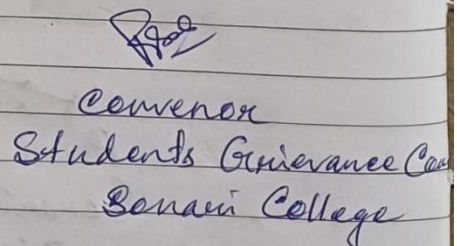 Convenor
Students Grievance
College